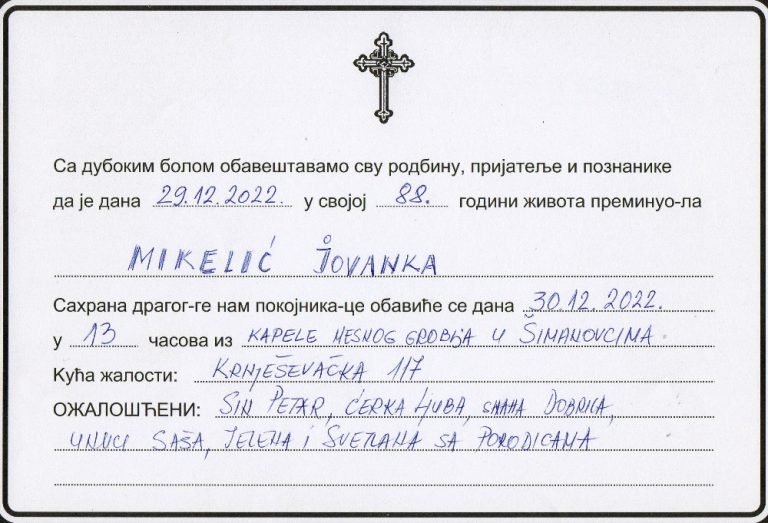 Са дубоким болом обавештавамо сву родбину, пријатеље и познанике
да је дана 29.12.2022. у својој 88. години живота преминуо-ла
MIKELIĆ JOVANKA
Сахрана драгог-ге нам покојника-це обавиће се дана 30.12.2022.
у 13 часова из KAPELE MESNOG GROBLJA U ŠIMANOVCIMA
Кућа жалости: KRNJEŠEVAČKA 117
ОЖАЛОШЋЕНИ: SIN PETAR, ĆERKA LJUBA, SNAHA DOBRILA,
UNUCI SAŠA, JELENA i SVETLANA SA PORODICAMA